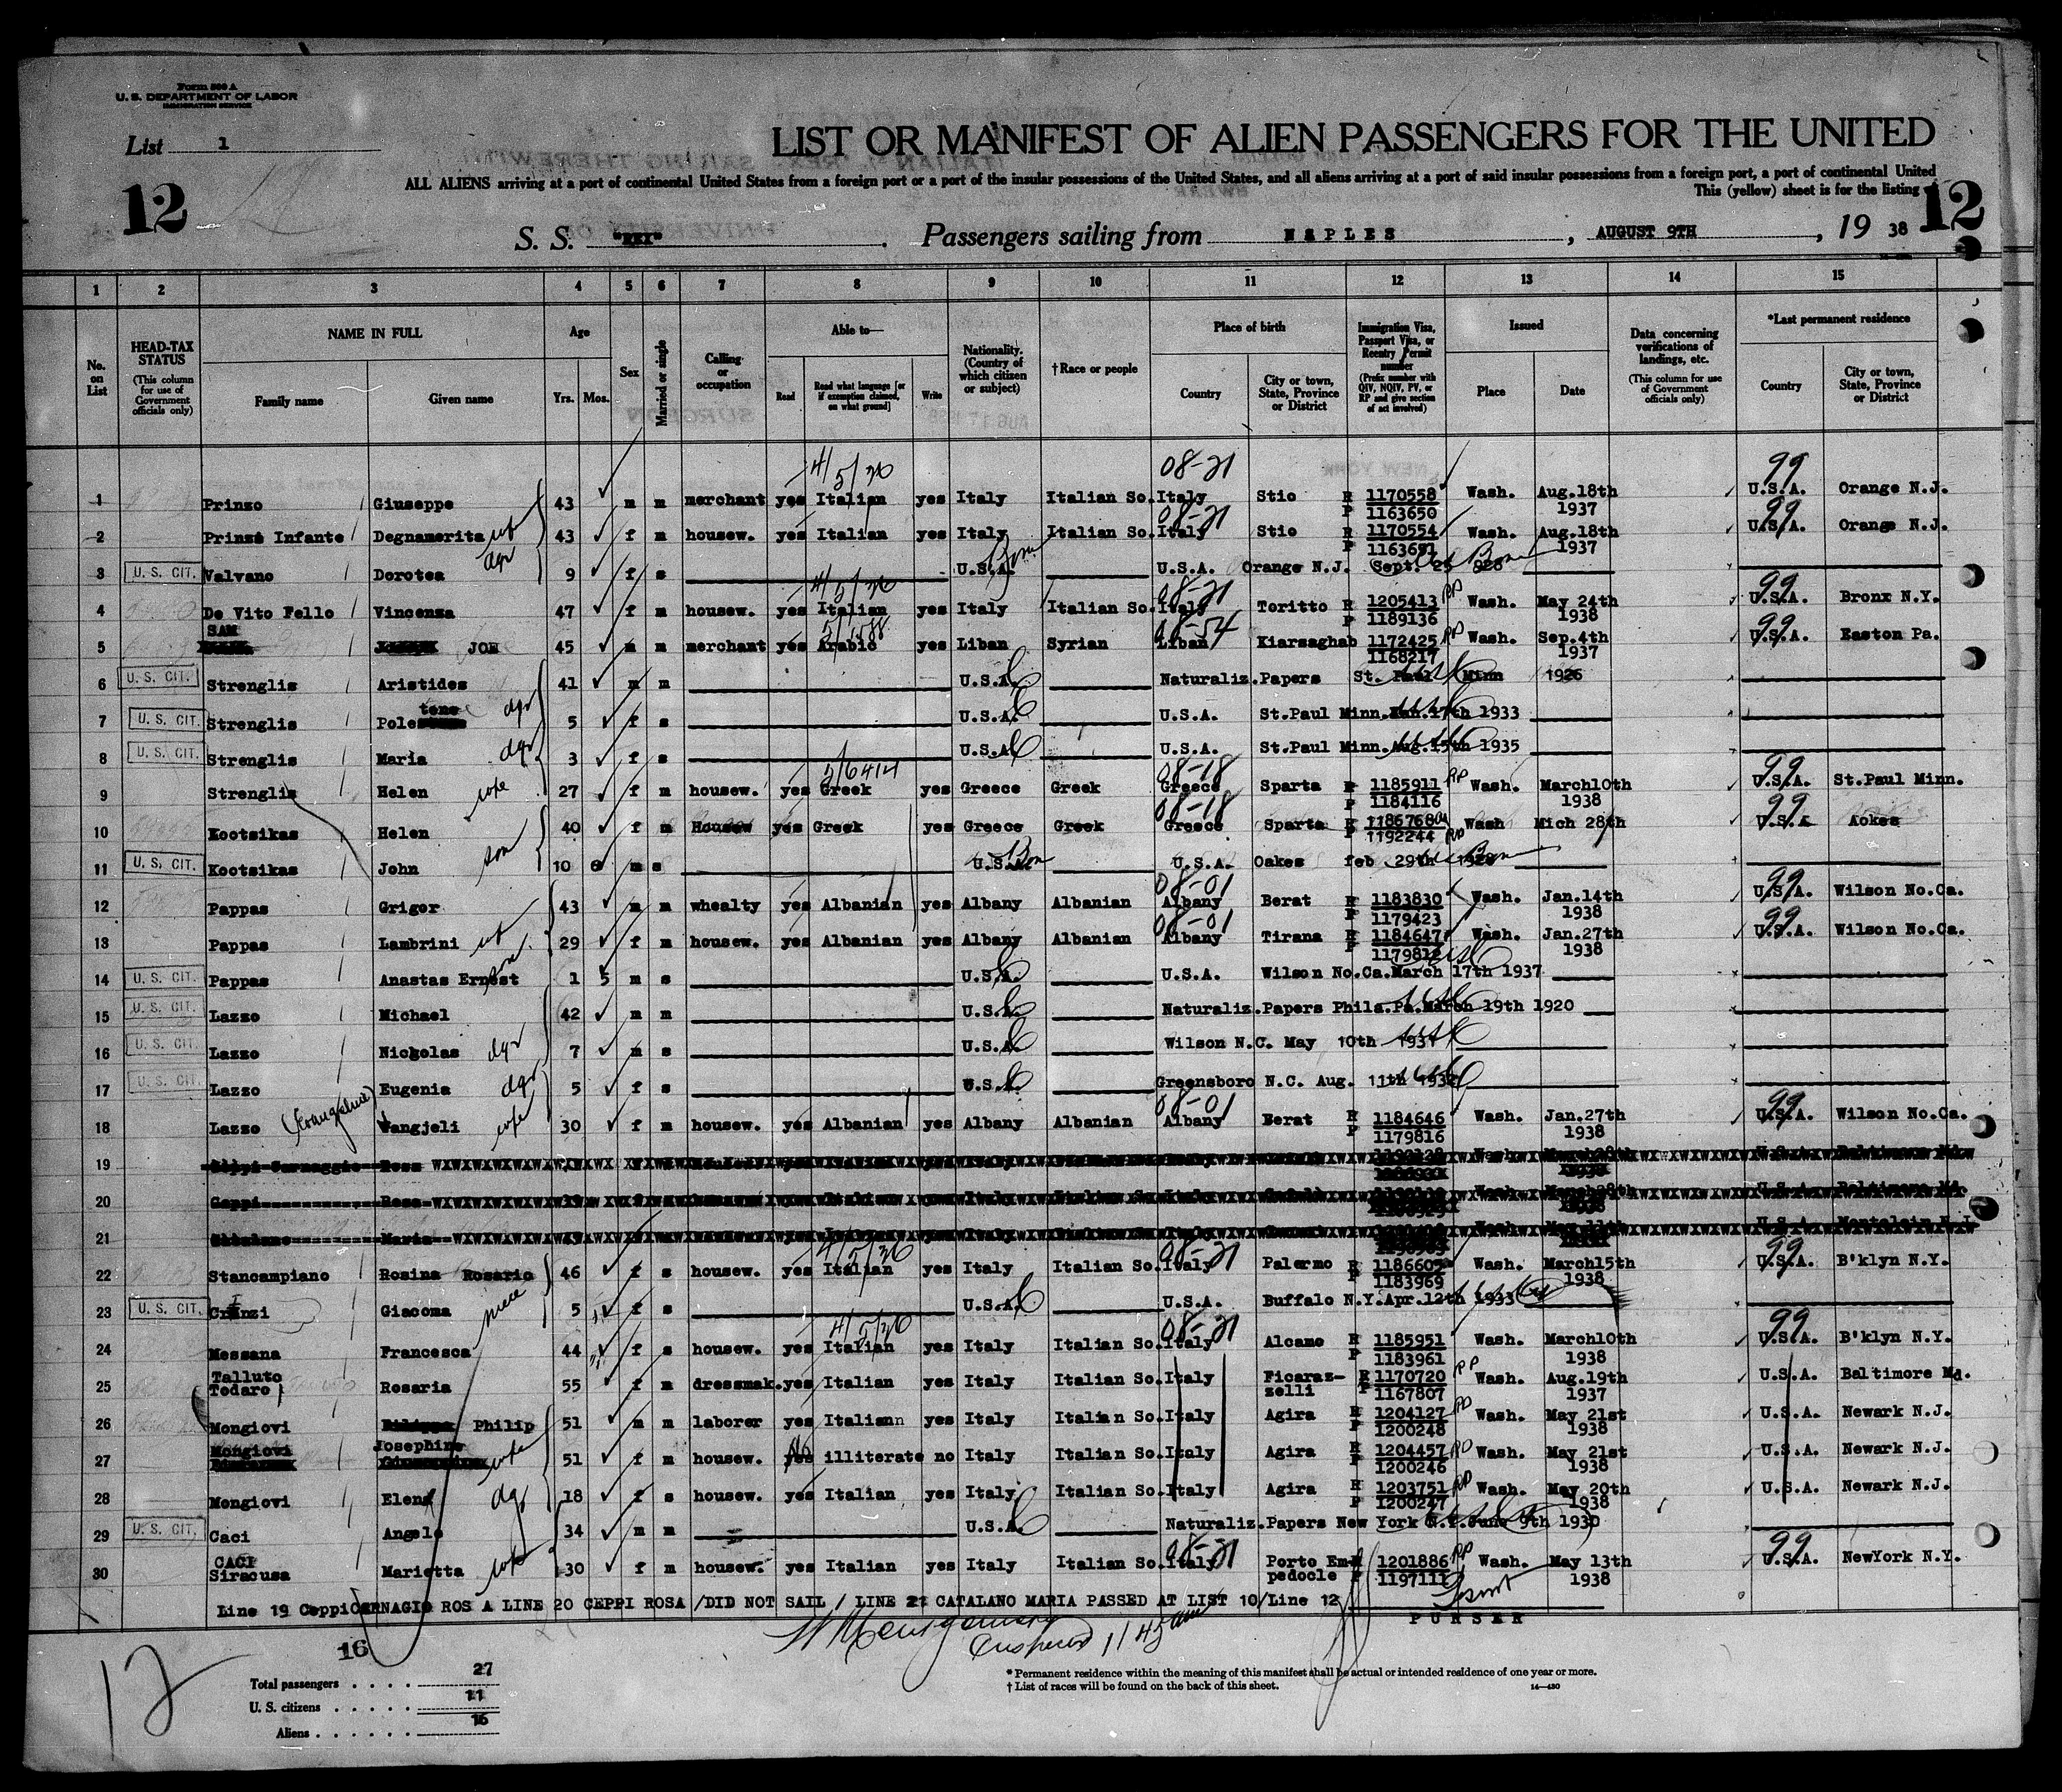 Form 500 A
U. S. DEPARTMENT OF LABOR
IMMIGRATION SERVICE
List 1
LIST OR MANIFEST OF ALIEN PASSENGERS FOR THE UNITED
ALL ALIENS arriving at a port of continental United States from a foreign port or a port of the insular possessions of the United States, and all aliens arriving at a port of said insular possessions from a foreign port, a port of continental United
This (yellow) sheet is for the listing
12 12
S. S. "REX" . Passengers sailing from NAPLES , AUGUST 9TH , 19 38
1 2 3 4 5 6 7 8 9 10 11 12 13 14 15
No. on List
HEAD-TAX STATUS (This column for use of Government officials only)
NAME IN FULL
Family name Given name
Age
Yrs. Mos.
Sex
Married or single
Calling or occupation
Able to—
Read Read what language [or if exemption claimed, on what ground] Write
Nationality. (Country of which citizen or subject)
†Race or people
Place of birth
Country City or town, State, Province or District
Immigration Visa, Passport Visa, or Reentry Permit number (Prefix number with QIV, NQIV, PV, or RP and give section of act involved)
Issued
Place Date
Data concerning verifications of landings, etc. (This column for use of Government officials only)
*Last permanent residence
Country City or town, State, Province or District
4/5/30 08-21 99
1 Prinzo Giuseppe 43 m m merchant yes Italian yes Italy Italian So. Italy Stio R 1170558 P 1163650 Wash. Aug.18th 1937 U.S.A. Orange N.J.
08-21 99
2 Infante Degnamerita wf 43 f m housew. yes Italian yes Italy Italian So. Italy Stio R 1170554 P Wash. Aug.18th 1937 U.S.A. Orange N.J.
3 U. S. CIT. Valvano Dorotea dgr 9 f s U.S.A. Born U.S.A. Orange N.J. Sept. 25
4/5/30 08-21 99
4 De Vito Fello Vincenza 47 f m housew. yes Italian yes Italy Italian So. Italy Toritto R 1205413 P 1189136 PP Wash. May 24th 1938 U.S.A. Bronx N.Y.
08-54 99
5 SAM JOE 45 m m merchant yes Arabic yes Liban Syrian Liban Kiarsaghab 1172425 1168217 PP Wash. Sep.4th 1937 U.S.A. Easton Pa.
6 U. S. CIT. Strenglis Aristides 41 m m U.S.A. Naturaliz.Papers St. Paul Minn 1926
7 U. S. CIT. Strenglis Pole tene dgr 5 f s U.S.A. U.S.A. St.Paul Minn. 17th 1933
8 U. S. CIT. Strenglis Maria dgr 3 f s U.S.A. U.S.A. St.Paul Minn.Aug.15th 1935
5/6414 08-18 99
9 Strenglis Helen wife 27 f m housew. yes Greek yes Greece Greek Greece Sparta R 1185911 P 1184116 PP Wash. March10th 1938 U.S.A. St.Paul Minn.
08-18 99
10 Kootsikas Helen 40 f m Housew yes Greek yes Greece Greek Greece Sparta 1186768 1192244 PP Wash Mich 28th U.S.A Aokes
11 U. S. CIT. Kootsikas John son 10 m s U.S.A. Born U.S.A. Oakes feb 29th
08-01 99
12 Pappas Grigor 43 m m whealty yes Albanian yes Albany Albanian Albany Berat R 1183830 P 1179423 Wash. Jan.14th 1938 U.S.A. Wilson No.Ca.
08-01 99
13 Pappas Lambrini wf 29 f m housew. yes Albanian yes Albany Albanian Albany Tirana R 1184647 P 1179812 Wash. Jan.27th 1938 U.S.A. Wilson No.Ca.
14 U. S. CIT. Pappas Anastas Ernest son 1 5 m s U.S.A. U.S.A. Wilson No.Ca.March 17th 1937
15 U. S. CIT. Lazzo Michael 42 m m U.S.A. Naturaliz.Papers Phila.Pa.March 19th 1920
16 U. S. CIT. Lazzo Nicholas dgr 7 m s U.S.A. Wilson N.C. May 10th 1931
17 U. S. CIT. Lazzo Eugenia dgr 5 f s U.S.A. Greensboro N.C. Aug. 11th 1932
08-01 99
18 Lazzo Vangjeli wife 30 f m housew. yes Albanian yes Albany Albanian Albany Berat R 1184646 P 1179816 Wash. Jan.27th 1938 U.S.A. Wilson No.Ca.
19
20 Ceppi Rosa
21 Maria
4/5/30 08-21 99
22 Stancampiano Rosina Rosario 46 f s housew. yes Italian yes Italy Italian So. Italy Palermo R 1186605 P 1183969 Wash. March15th 1938 U.S.A. B'klyn N.Y.
23 U. S. CIT. Giacoma niece 5 f s U.S.A. U.S.A. Buffalo N.Y.Apr.12th 1933
4/5/30 08-21 99
24 Messana Francesca 44 f s housew. yes Italian yes Italy Italian So. Italy Alcamo R 1185951 P 1183961 Wash. March10th 1938 U.S.A. B'klyn N.Y.
25 Talluto Todaro Rosaria 55 f m dressmak. yes Italian yes Italy Italian So. Italy Ficaraz-zelli R 1170720 P 1167807 PP Wash. Aug.19th 1937 U.S.A. Baltimore Md.
26 Mongiovi Philip 51 m m laborer yes Italiann yes Italy Italian So. Italy Agira R 1204127 P 1200248 PP Wash. May 21st 1938 U.S.A. Newark N.J.
27 Mongiovi Josephine wife 51 f m housew. No illiterate no Italy Italian So. Italy Agira R 1204457 P 1200246 PP Wash. May 21st 1938 U.S.A. Newark N.J.
28 Mongiovi Elena dgr 18 f s housew. yes Italian yes Italy Italian So. Italy Agira R 1203751 P 1200247 PP Wash. May 20th 1938 U.S.A. Newark N.J.
29 U. S. CIT. Caci Angelo 34 m m U.S.A. Naturaliz.Papers New York N.Y.June 9th 1930
08-21 99
30 CACI Siracusa Marietta wife 30 f m housew. yes Italian yes Italy Italian So. Italy Porto Em-pedocle 1201886 P 1197111 PP Wash. May 13th 1938 U.S.A. NewYork N.Y.
Line 19 Ceppi CARNAGIO ROS A LINE 20 CEPPI ROSA /DID NOT SAIL / LINE 21 CATALANO MARIA PASSED AT LIST 10/Line 12
PURSER
Montgomery
11 45 am
16
12
Total passengers . . . . 27
U. S. citizens . . . . . 11
Aliens . . . . . . 16
* Permanent residence within the meaning of this manifest shall be actual or intended residence of one year or more.
† List of races will be found on the back of this sheet.
14—430